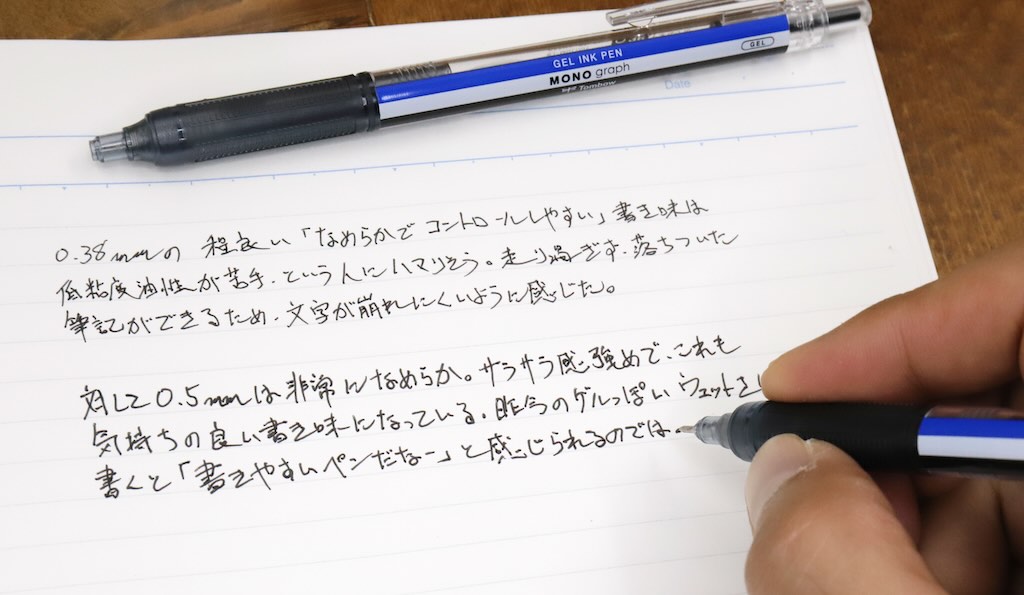 GEL INK PEN
MONO graph
Tombow
GEL
Date
0.38mmの 程良い「なめらかでコントロールしやすい」書き味は
低粘度油性が苦手、という人にハマりそう。走り過ぎず、落ちついた
筆記ができるため、文字が崩れにくいように感じた。
対して0.5mmは非常になめらか。サラサラ感強めで、これも
気持ちの良い書き味になっている。昨今のゲルっぽいウェットさ
書くと「書きやすいペンだなー」と感じられるのでは